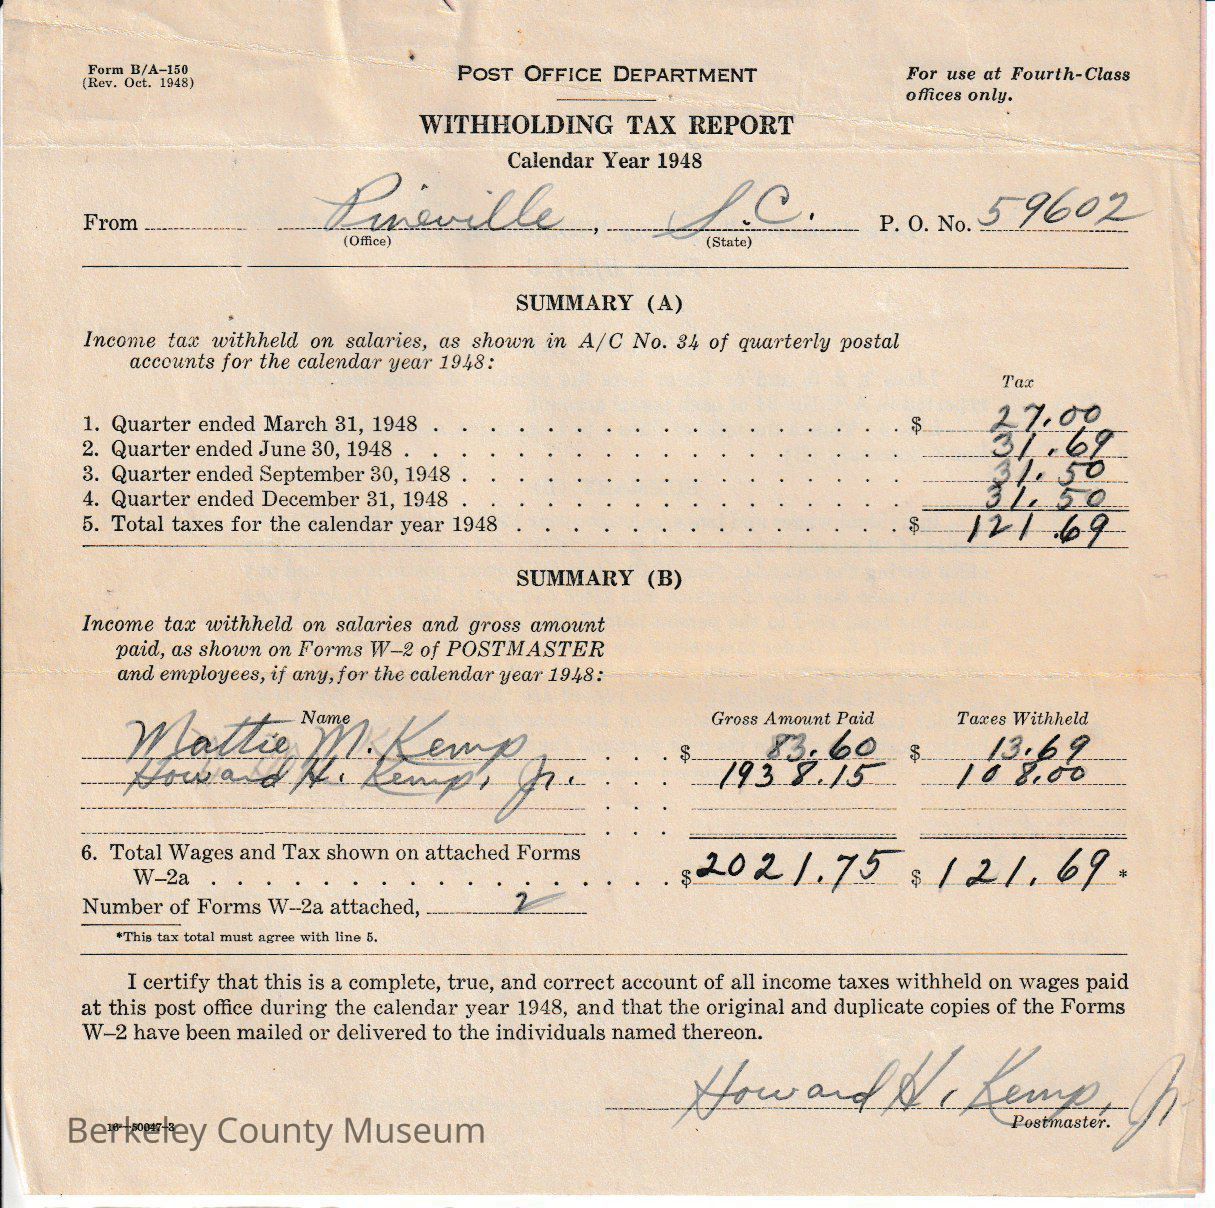 Form B/A–150
(Rev. Oct. 1948)
POST OFFICE DEPARTMENT
For use at Fourth-Class
offices only.
WITHHOLDING TAX REPORT
Calendar Year 1948
From Pineville, S.C. P. O. No. 59602
(Office) (State)
SUMMARY (A)
Income tax withheld on salaries, as shown in A/C No. 34 of quarterly postal
accounts for the calendar year 1948:
Tax
1. Quarter ended March 31, 1948 . . . . . . . . . . . . . . . . . $ 27.00
2. Quarter ended June 30, 1948 . . . . . . . . . . . . . . . . . . 31.69
3. Quarter ended September 30, 1948 . . . . . . . . . . . . . . . . 31.50
4. Quarter ended December 31, 1948 . . . . . . . . . . . . . . . . 31.50
5. Total taxes for the calendar year 1948 . . . . . . . . . . . . . . $ 121.69
SUMMARY (B)
Income tax withheld on salaries and gross amount
paid, as shown on Forms W–2 of POSTMASTER
and employees, if any, for the calendar year 1948:
Name Gross Amount Paid Taxes Withheld
Mattie M. Kemp . . . $ 83.60 $ 13.69
Howard H. Kemp, Jr. . . . 1938.15 108.00
6. Total Wages and Tax shown on attached Forms
W–2a . . . . . . . . . . . . . . . . . $ 2021.75 $ 121.69 *
Number of Forms W–2a attached, 2
*This tax total must agree with line 5.
I certify that this is a complete, true, and correct account of all income taxes withheld on wages paid
at this post office during the calendar year 1948, and that the original and duplicate copies of the Forms
W–2 have been mailed or delivered to the individuals named thereon.
Howard H. Kemp, Jr.
Postmaster.
16—50047-3
Berkeley County Museum